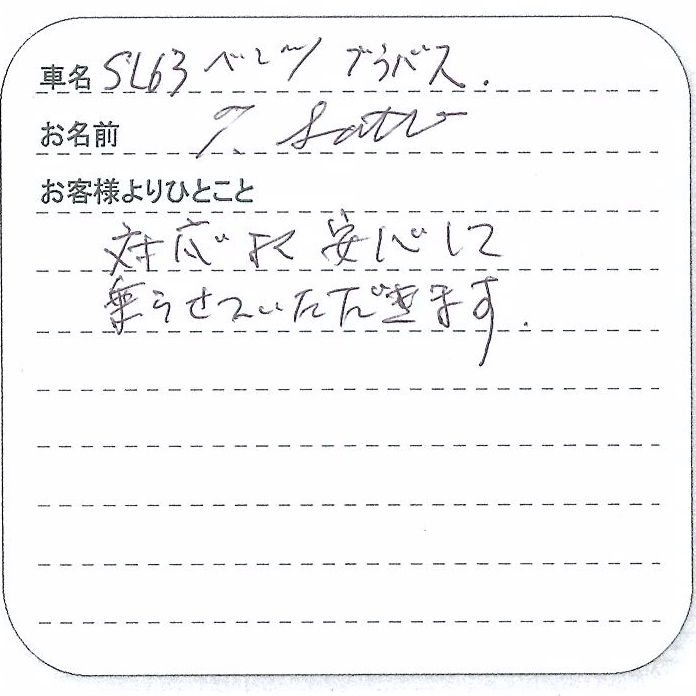 車名 SL63 ベンツ ブラバス.
お名前 T. Sato
お客様よりひとこと
対応よく安心して
乗らせていただきます.